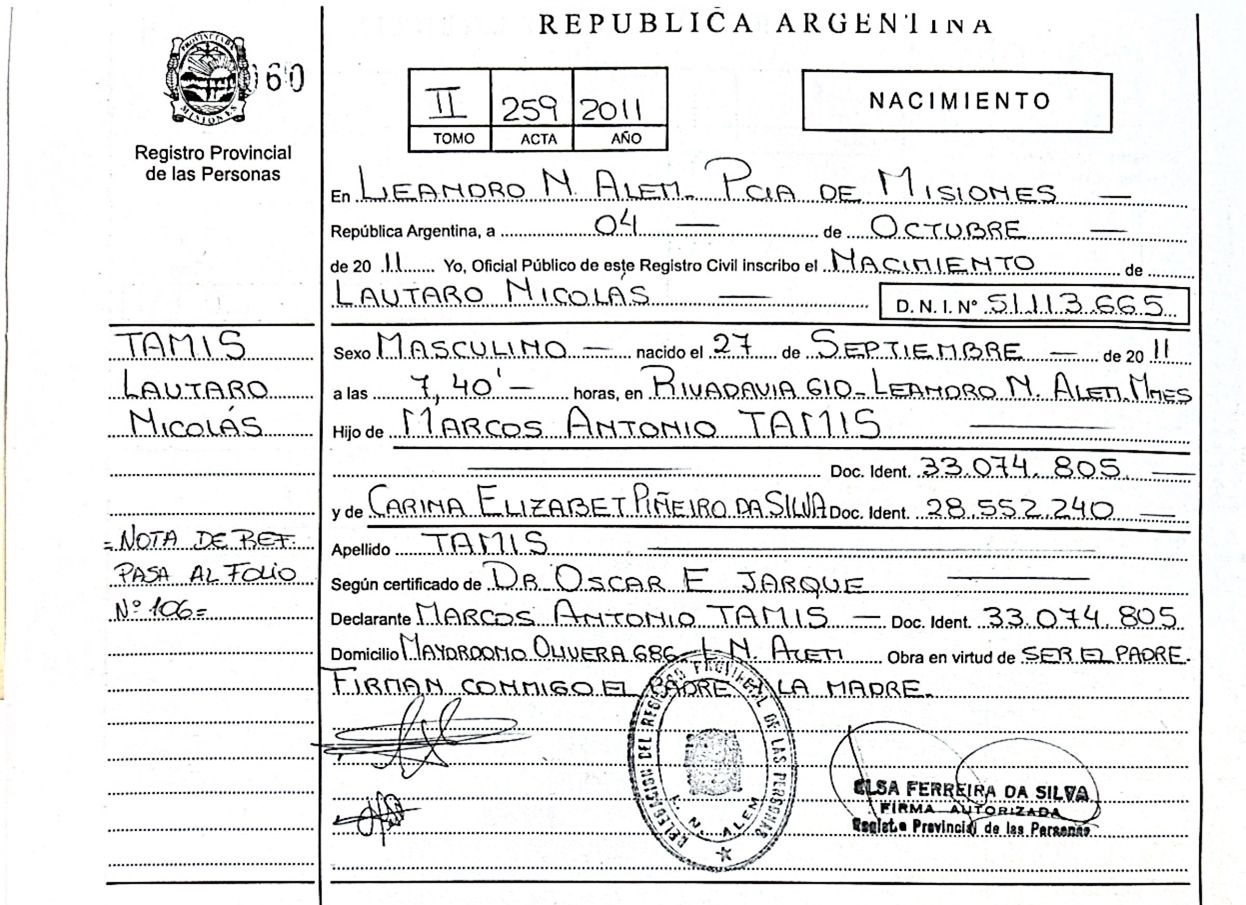 REPUBLICA ARGENTINA
PROVINCIA DE MISIONES
060
Registro Provincial
de las Personas
II 259 2011
TOMO ACTA AÑO
NACIMIENTO
En LEANDRO N. ALEM. PCIA DE MISIONES
República Argentina, a 04 de OCTUBRE
de 20 11 Yo, Oficial Público de este Registro Civil inscribo el NACIMIENTO de
LAUTARO NICOLÁS D. N. I. N° 51.113.665
TAMIS
LAUTARO
NICOLÁS
Sexo MASCULINO nacido el 27 de SEPTIEMBRE de 20 11
a las 7,40' horas, en RIVADAVIA 610_LEANDRO N. ALEM.MNES
Hijo de MARCOS ANTONIO TAMIS
Doc. Ident. 33.074.805.
y de CARINA ELIZABET PIÑEIRO DA SILVA Doc. Ident. 28.552.240
=NOTA DE REF.
PASA AL FOLIO
Nº 106=
Apellido TAMIS
Según certificado de DR. OSCAR E JARQUE
Declarante MARCOS ANTONIO TAMIS Doc. Ident. 33.074.805
Domicilio MAYORDOMO OLIVERA 686_L.N. ALEM Obra en virtud de SER EL PADRE.
FIRMAN CONMIGO EL PADRE LA MADRE.
DELEGACION DEL REGISTRO PROVINCIAL DE LAS PERSONAS
L. N. ALEM
ELSA FERREIRA DA SILVA
FIRMA AUTORIZADA
Registro Provincial de las Personas